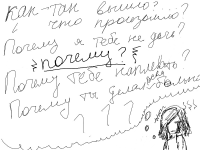 как-так вышло?
что произошло?
Почему я тебе не дочь?
почему?
Почему тебе наплевать?
Почему ты делал больно
? ? ?